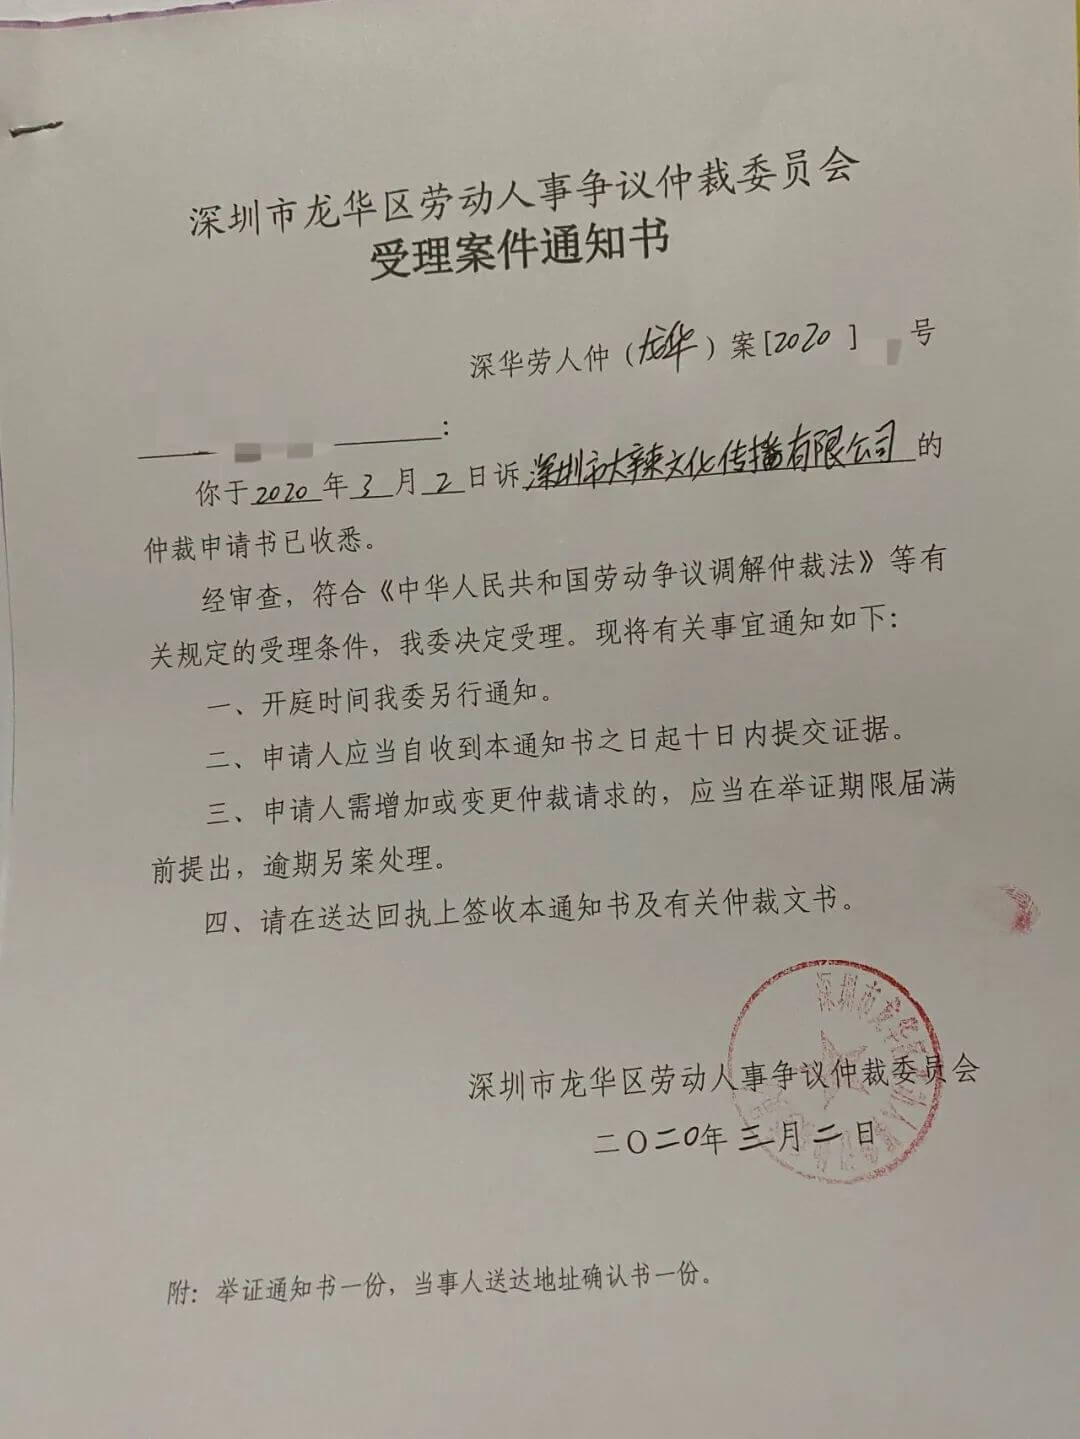 深圳市龙华区劳动人事争议仲裁委员会
受理案件通知书
深华劳人仲（龙华）案[2020]号
：
你于2020年3月2日诉深圳市大辣文化传播有限公司的
仲裁申请书已收悉。
经审查，符合《中华人民共和国劳动争议调解仲裁法》等有
关规定的受理条件，我委决定受理。现将有关事宜通知如下：
一、开庭时间我委另行通知。
二、申请人应当自收到本通知书之日起十日内提交证据。
三、申请人需增加或变更仲裁请求的，应当在举证期限届满
前提出，逾期另案处理。
四、请在送达回执上签收本通知书及有关仲裁文书。
深圳市龙华区
深圳市龙华区劳动人事争议仲裁委员会
二〇二〇年三月二日
附：举证通知书一份，当事人送达地址确认书一份。